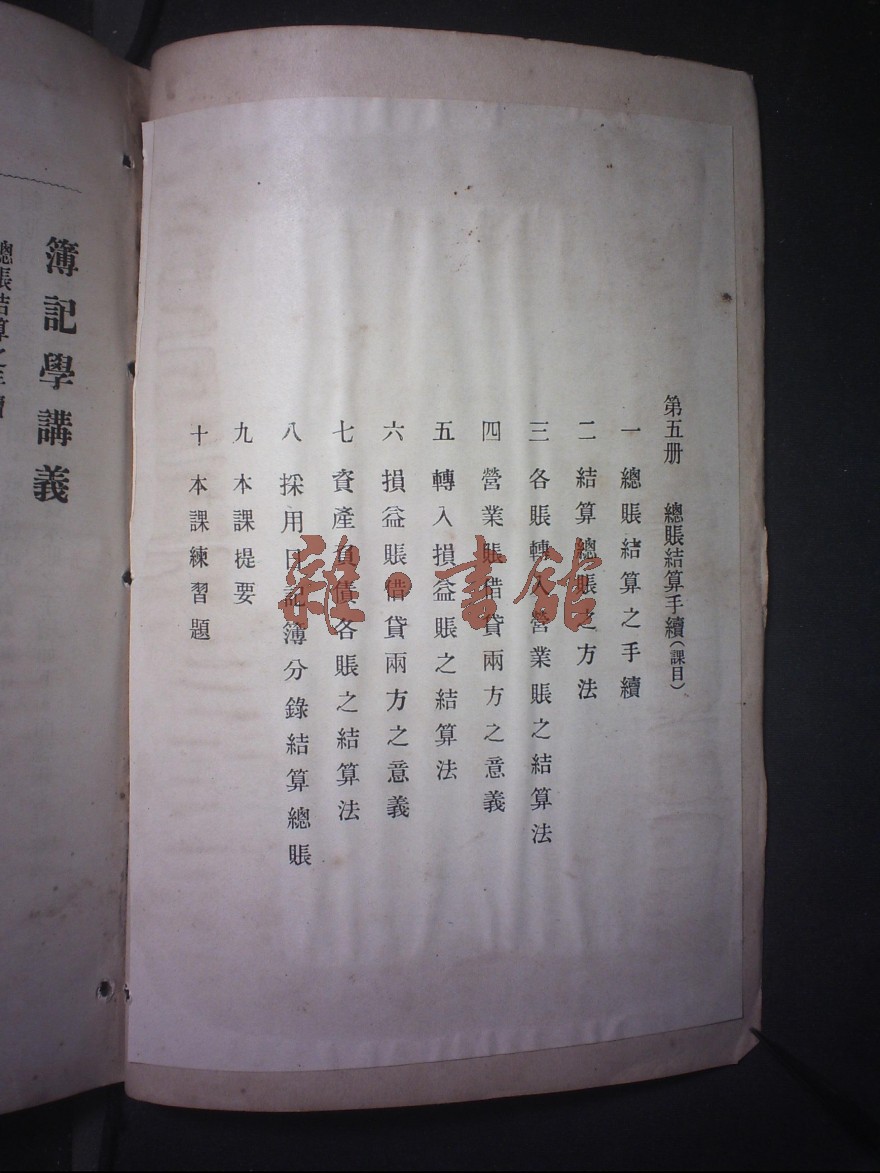 第五册　總賬結算手續(課目)
一　總賬結算之手續
二　結算總賬之方法
三　各賬轉入營業賬之結算法
四　營業賬借貸兩方之意義
五　轉入損益賬之結算法
六　損益賬借貸兩方之意義
七　資產負債各賬之結算法
八　採用日記簿分錄結算總賬
九　本課提要
十　本課練習題
簿記學講義
總賬結算之手續
雜·書館